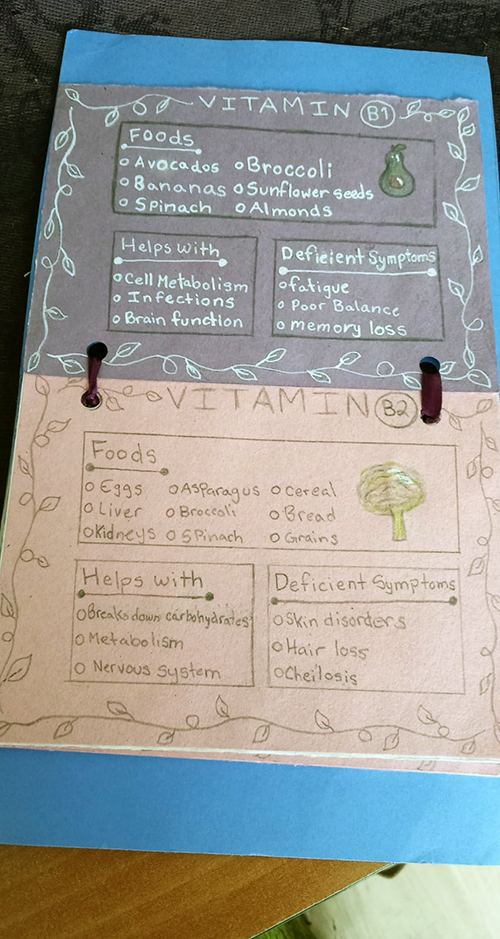 VITAMIN B1
Foods
Avocados Broccoli
Bananas Sunflower seeds
Spinach Almonds
Helps with
Cell Metabolism
Infections
Brain function
Deficient Symptoms
fatigue
Poor Balance
memory loss
VITAMIN B2
Foods
Eggs Asparagus cereal
Liver Broccoli Bread
Kidneys Spinach Grains
Helps with
Breaks down carbohydrates
Metabolism
Nervous system
Deficient Symptoms
Skin disorders
Hair loss
Cheilosis